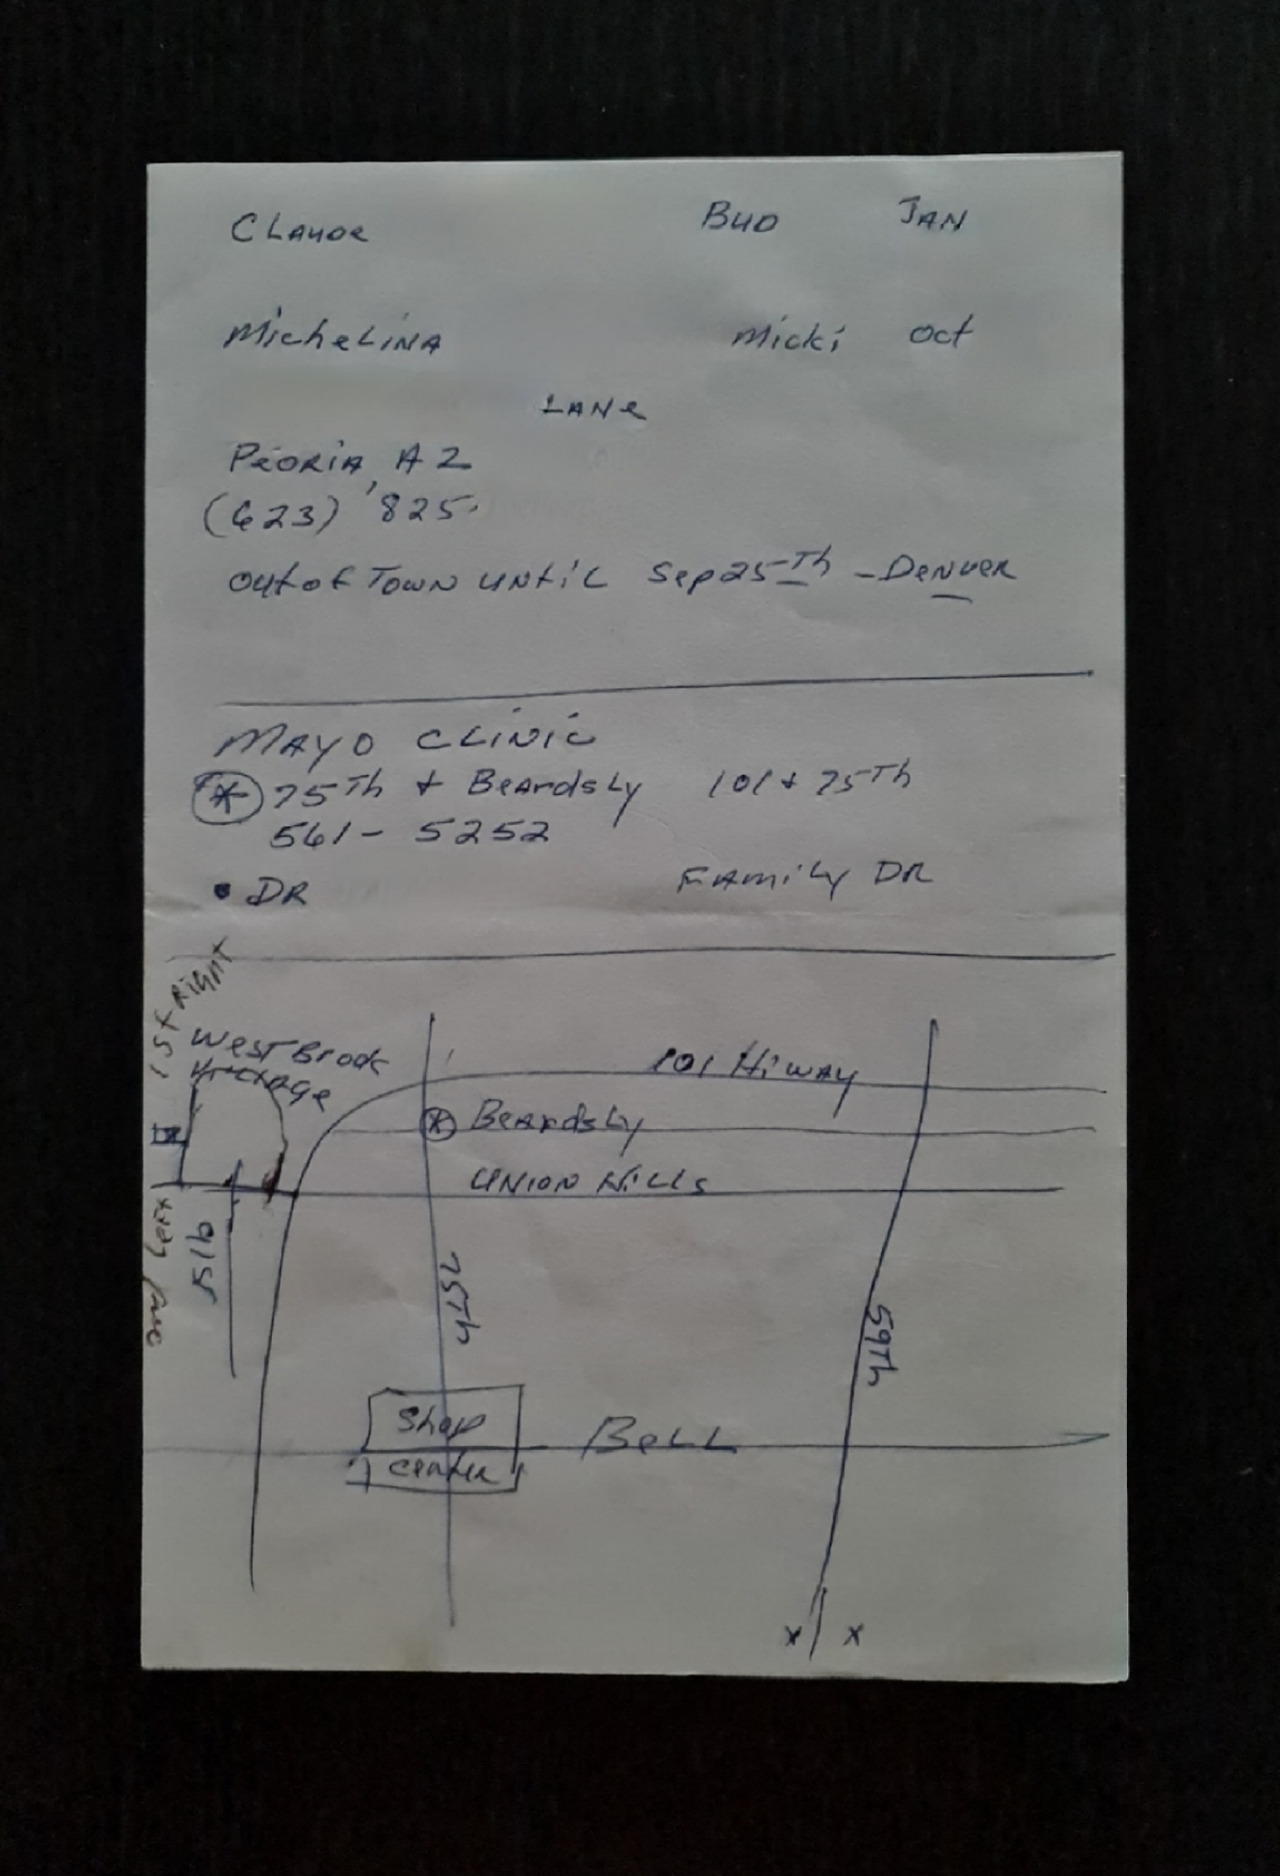 CLAUDE BUD JAN
MicheLiNA Micki Oct
LANe
PeORiA, AZ
(623) 825-
Out of TOWN UNtiL Sep 25Th - DeNveR
MAYO CLiNiC
* 75Th + BeArdsLy 101 + 75Th
561-5252
• DR FAmiLy DR
1St RiGHT
West BrOOk
Village
101 HiWAY
* BeArdsLy
UNiON HiLLs
2nd Left
91S
75Th
59Th
Shop
center
BeLL
x x